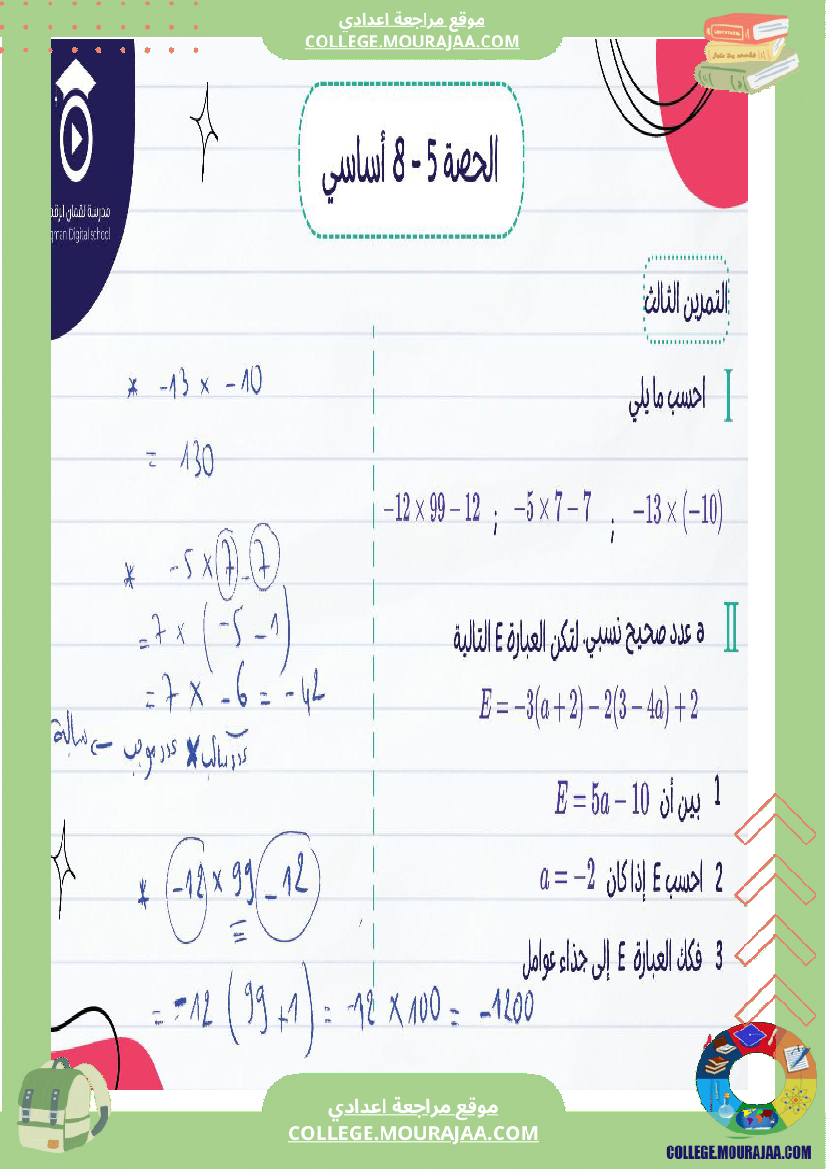 موقع مراجعة اعدادي
COLLEGE.MOURAJAA.COM
الحصة 5 - 8 أساسي
مدرسة لقمان الرقمية
qman Digital school
التمرين الثالث
I احسب ما يلي
-12 × 99 - 12 ; -5 × 7 - 7 ; -13 × (-10)
II a عدد صحيح نسبي. لتكن العبارة E التالية
E = -3(a + 2) - 2(3 - 4a) + 2
1 بين أن E = 5a - 10
2 احسب E إذا كان a = -2
3 فكك العبارة E إلى جذاء عوامل
* -13 × -10
= 130
* -5 × 7 - 7
= 7 × (-5 - 1)
= 7 × -6 = -42
عدد سالب × عدد موجب
* -12 × 99 - 12
=
= -12 (99 + 1) = -12 × 100 = -1200
موقع مراجعة اعدادي
COLLEGE.MOURAJAA.COM
COLLEGE.MOURAJAA.COM